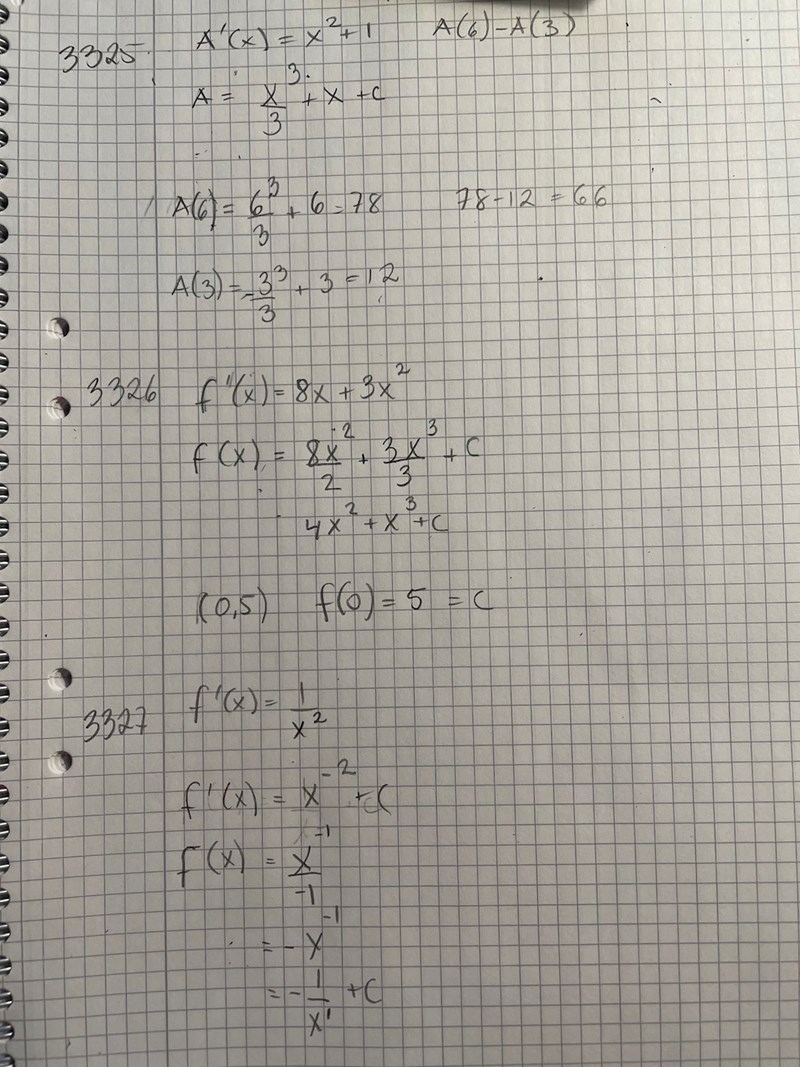 3325 A'(x) = x² + 1 A(6) - A(3)
A = x³/3 + x + C
A(6) = 6³/3 + 6 = 78 78 - 12 = 66
A(3) = 3³/3 + 3 = 12
3326 f'(x) = 8x + 3x²
f(x) = 8x²/2 + 3x³/3 + C
4x² + x³ + C
(0,5) f(0) = 5 = C
3327 f'(x) = 1/x²
f'(x) = x⁻² + C
f(x) = x⁻¹/-1
= -x⁻¹
= -1/x¹ + C